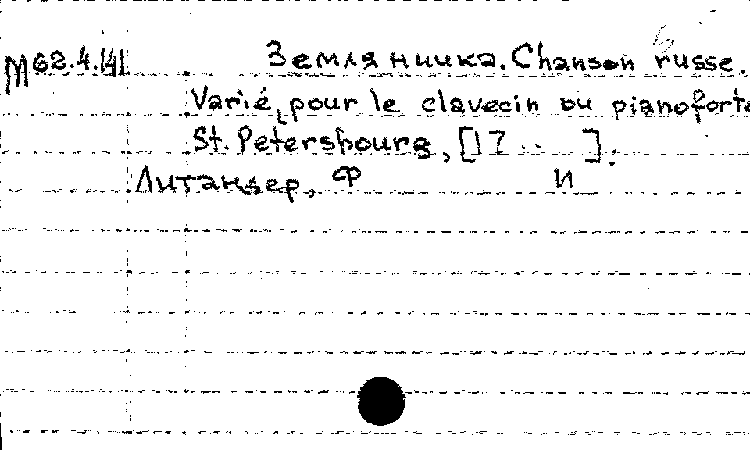 М 62.4.141 Земляничка. Chanson russe.
Varié, pour le clavecin ou pianoforte
St. Petersbourg, [17 .. ].
Литандер, Ф И